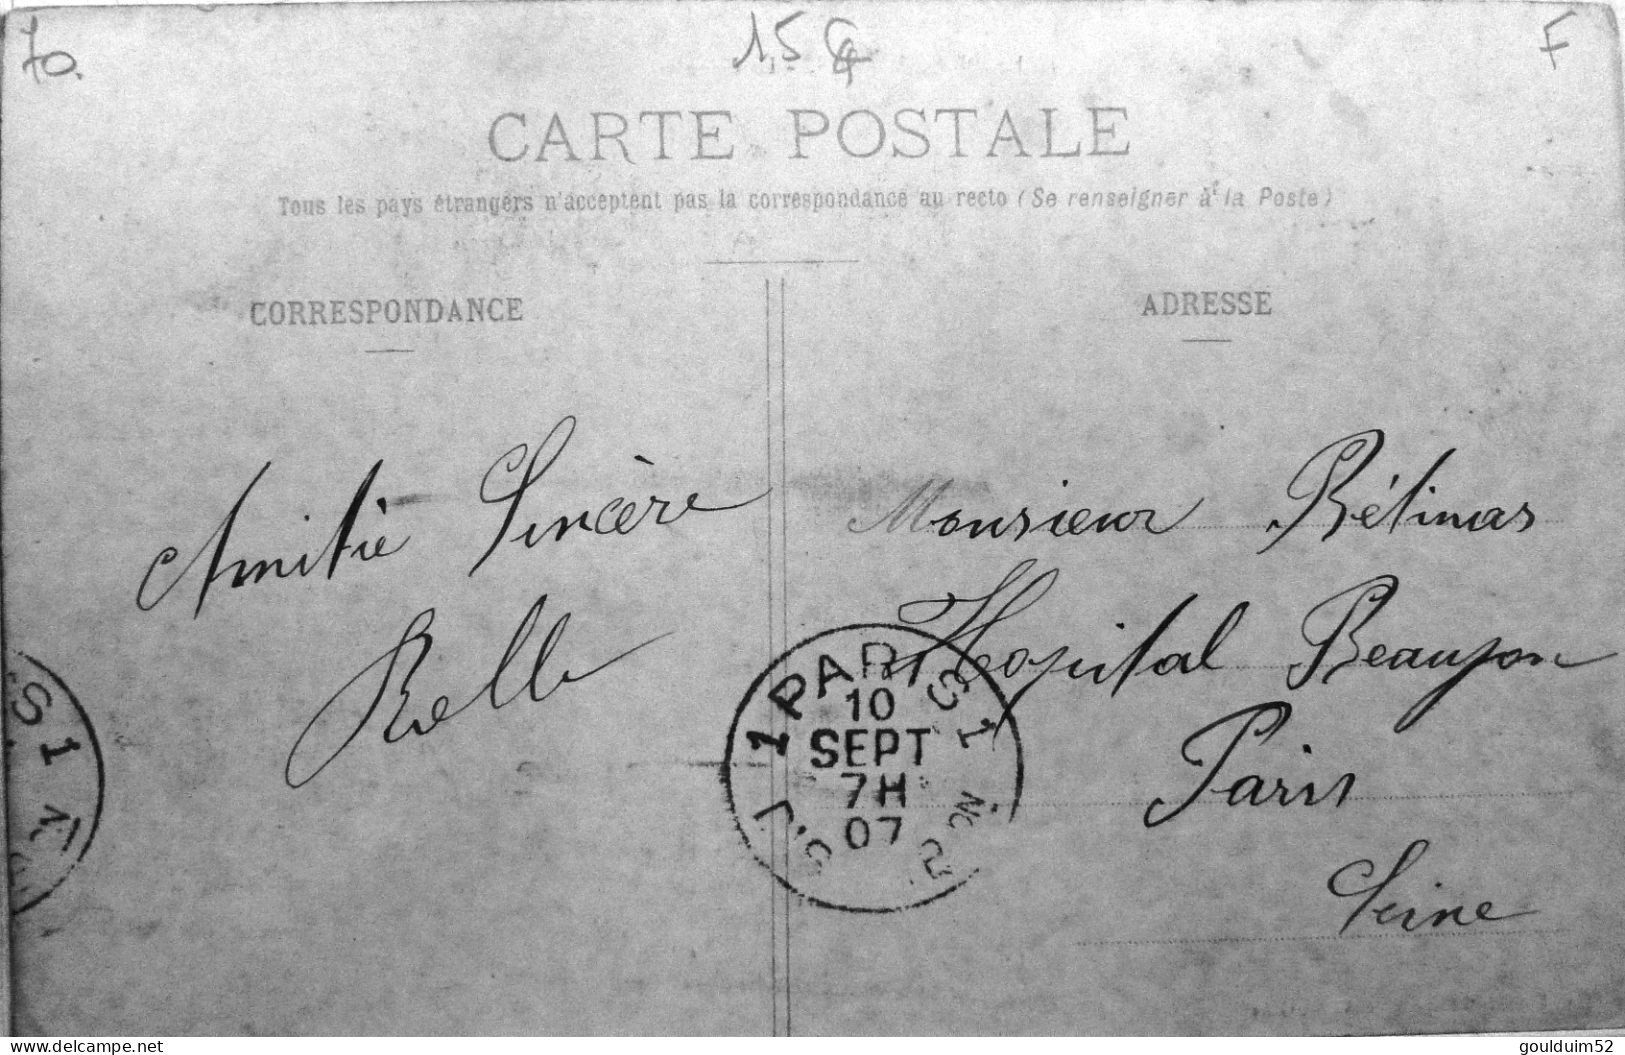 70.
15 €
F
CARTE POSTALE
Tous les pays étrangers n'acceptent pas la correspondance au recto (Se renseigner à la Poste)
CORRESPONDANCE
ADRESSE
Amitié Sincère
Monsieur Bétinas
Hopital Beaujon
Paris
Seine
1 PARIS 1
10
SEPT
7H
07
S 1
delcampe.net
goulduim52